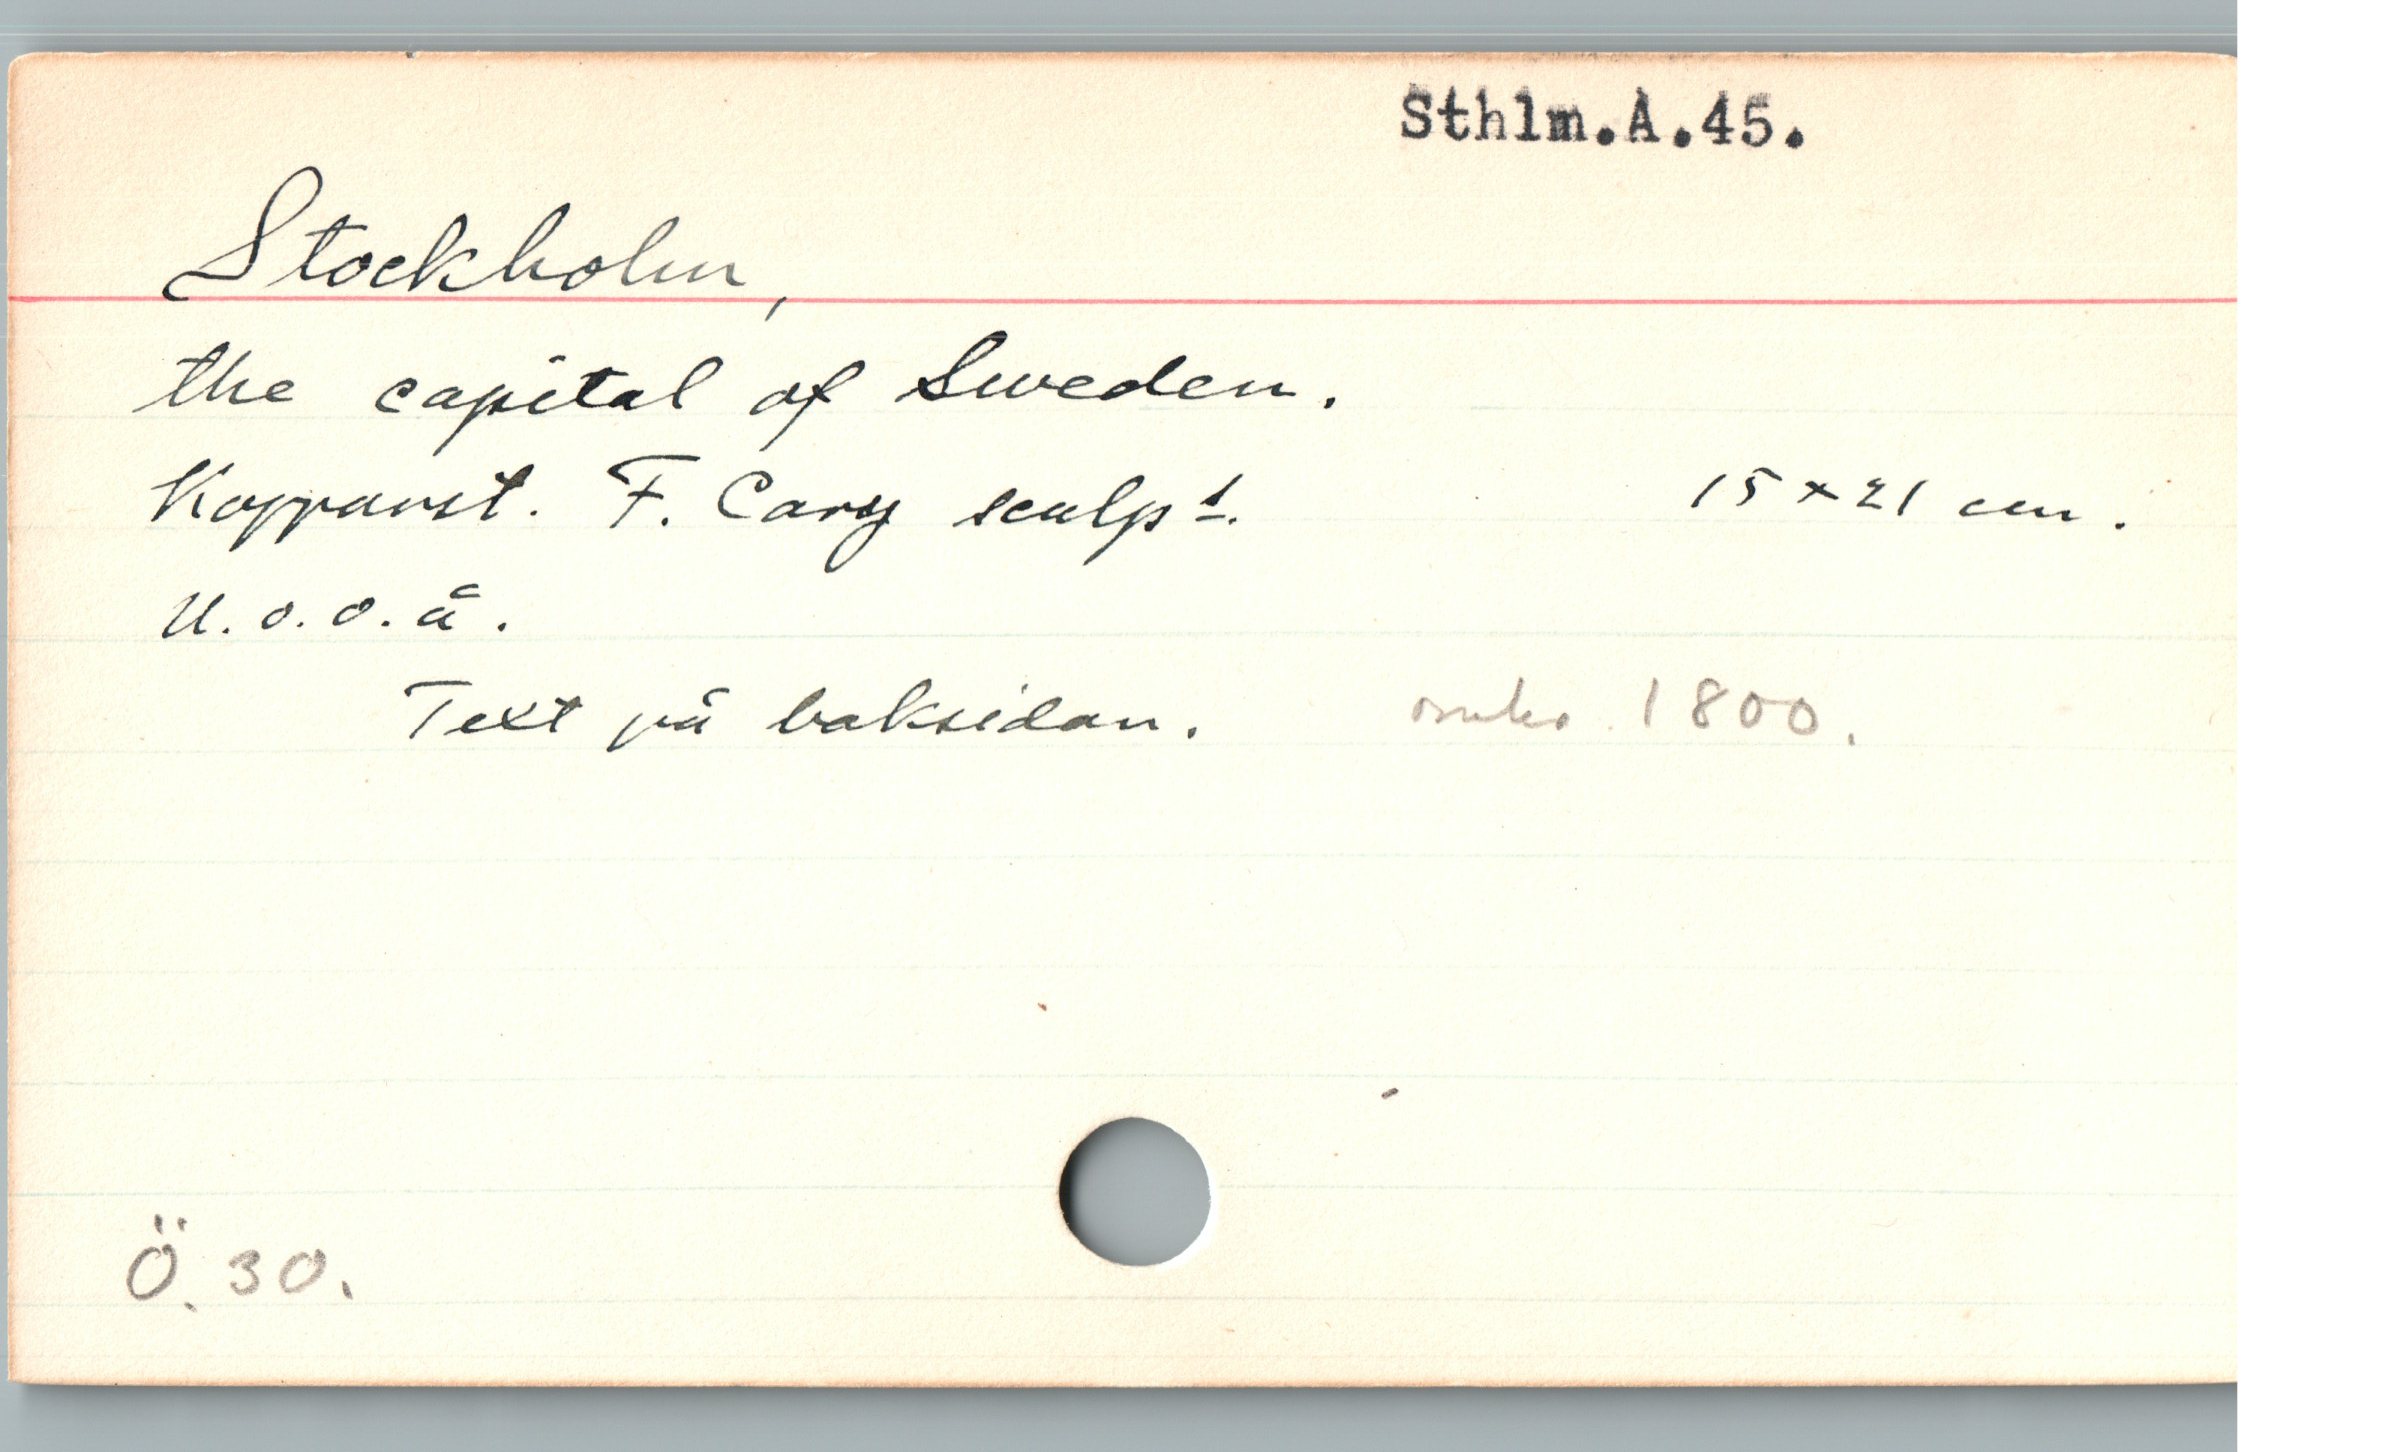 Sthlm.A.45.
Stockholm,
the capital of Sweden.
Kopparst. F. Cary sculpt. 15 × 21 cm.
U.o.o.å.
Text på baksidan. 1800.
Ö. 30.